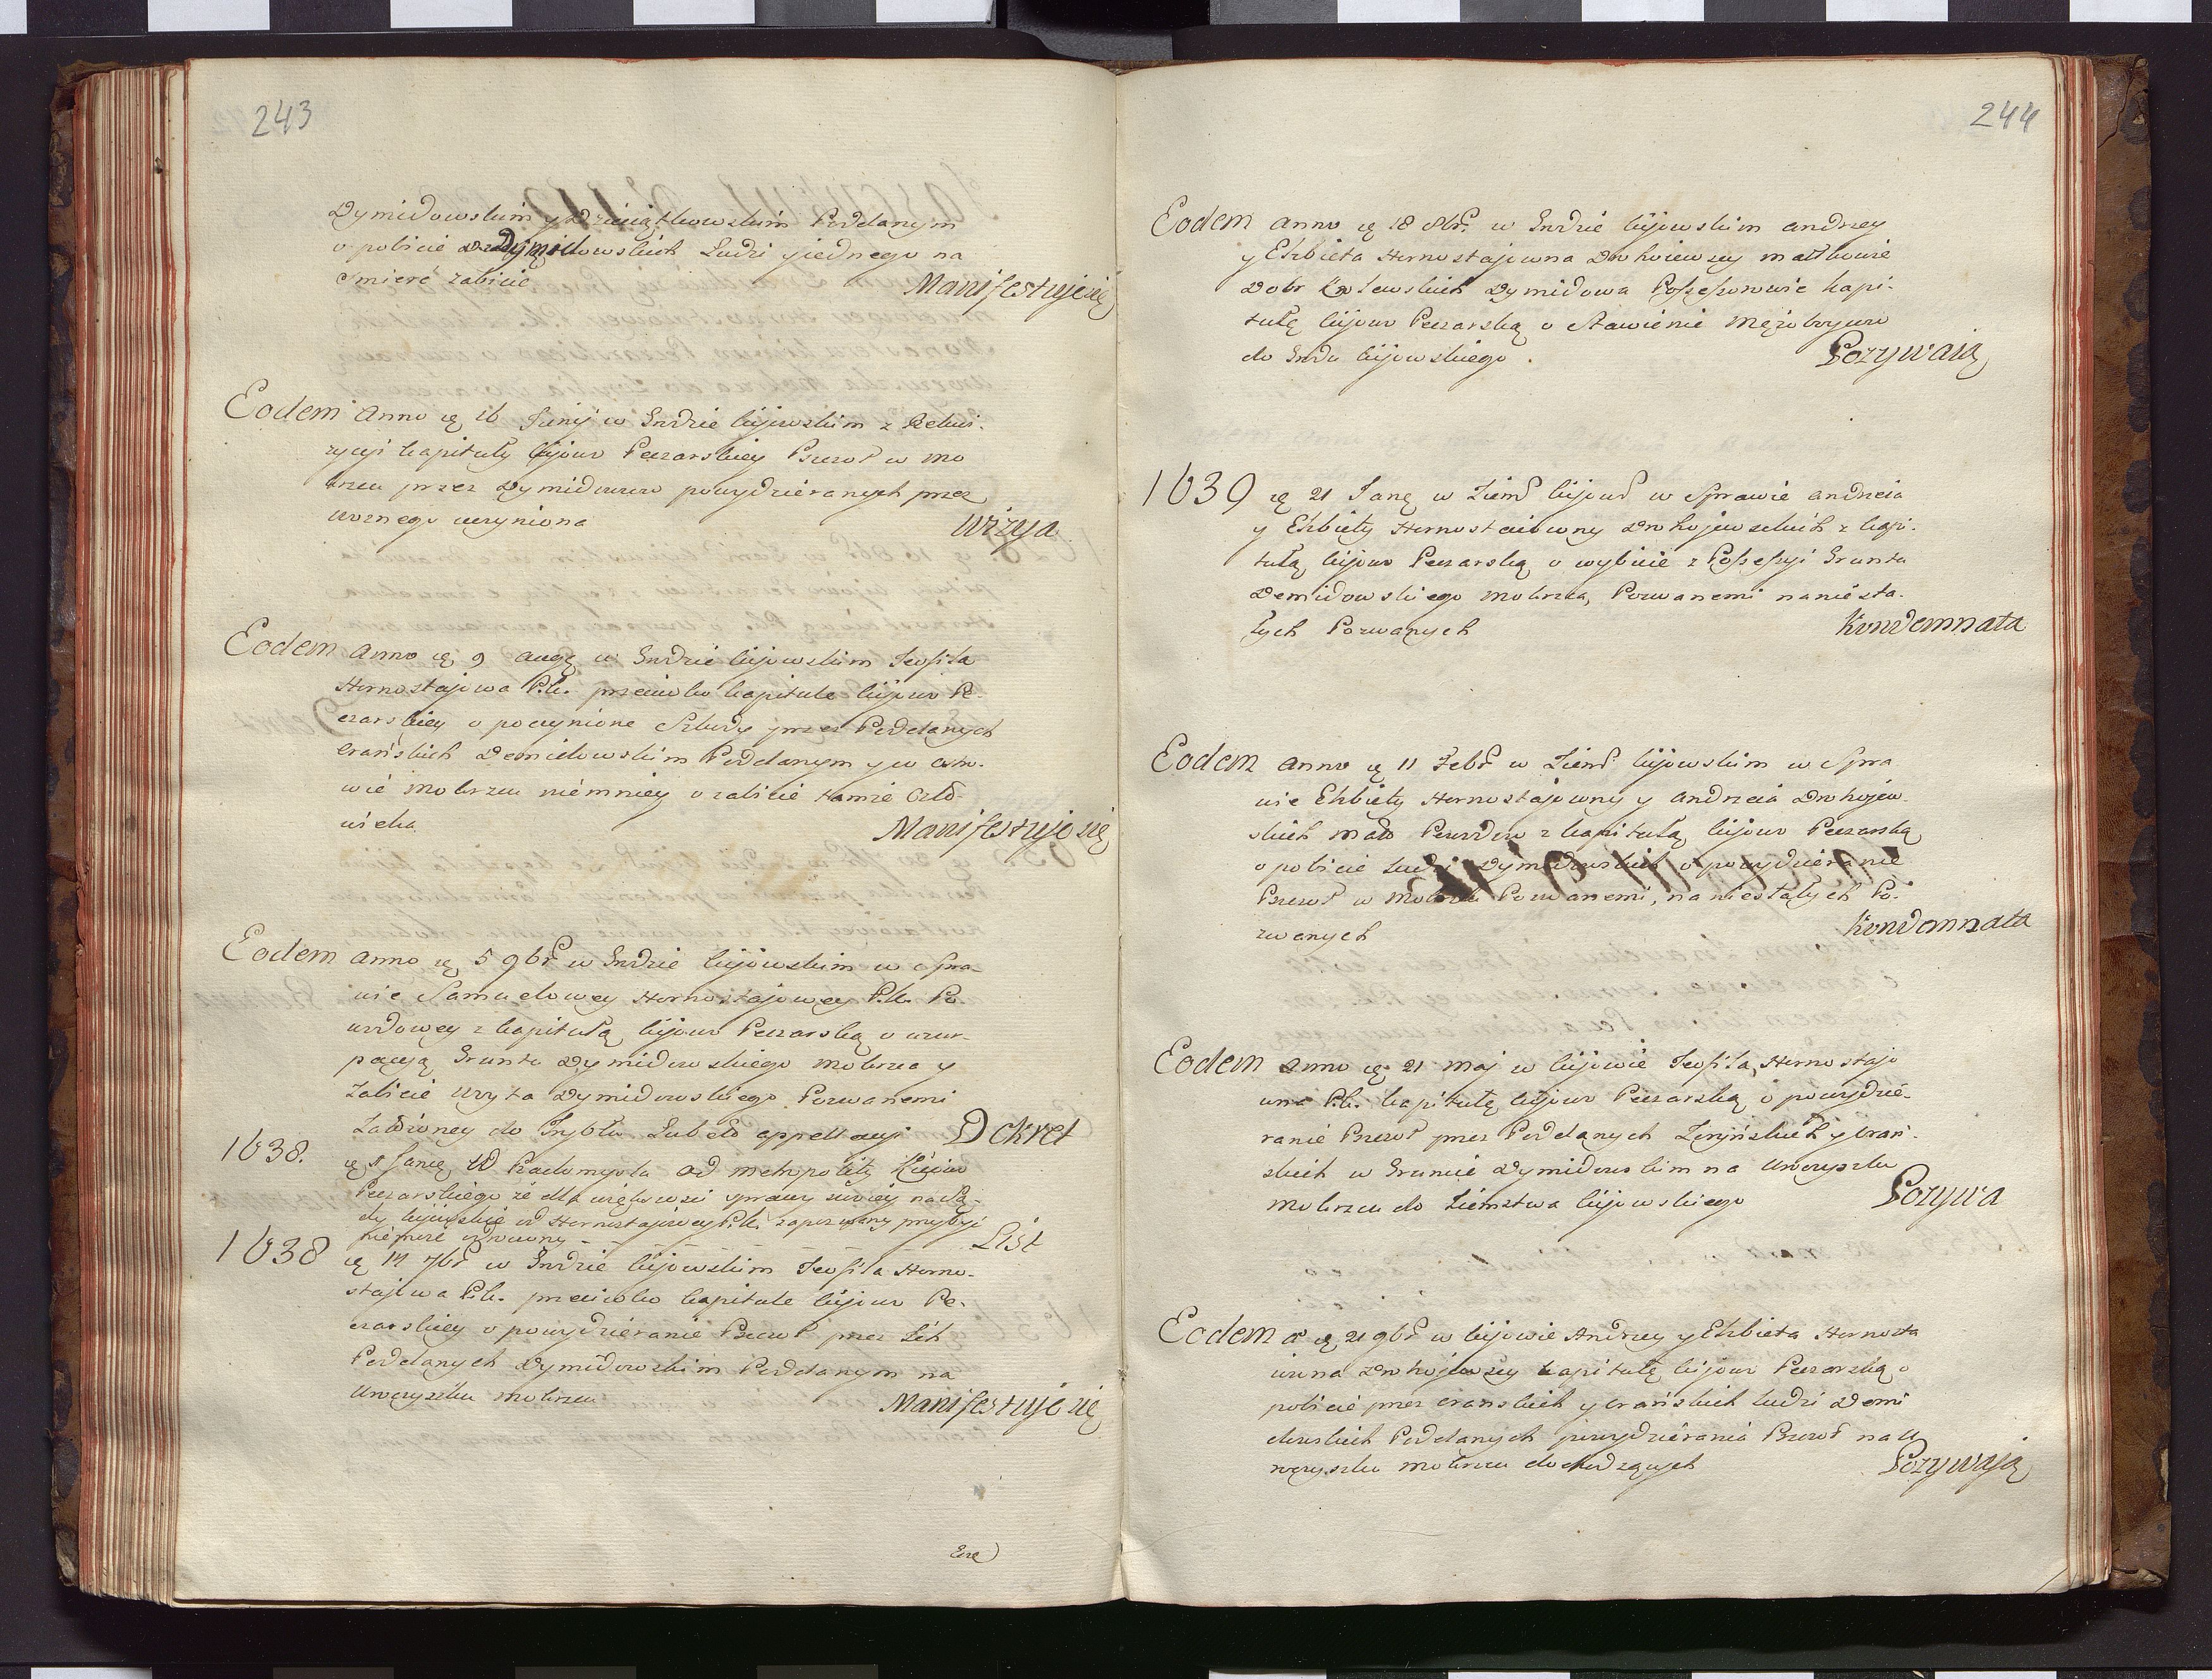 243
Dymidowskim y Dzieciątkowskim Poddanym
o pobicie Dymidowskich Ludzi y jednego na
śmierc zabicie Manifestuje się
Eodem Anno ię 16 Junij w Grdzie kijowskim z Rekwi-
zycyi kapituły kijow Peczarskiey Pszczoł w Mo
krzcu przez Dymidowcow powydzieranych przez
woznego uczyniona Wizya
Eodem Anno ię 9 Augę w Grdzie kijowskim Teofila
Hornostajowa P.k. przeciwko kapitule kijow Pe-
czarskiey o poczynione Szkody przez Poddanych
Crańskich Demidowskim Poddanym y w Ostro-
wie Mokrzcu niemniey o zabicie tamże Czło-
wieka Manifestuje się
Eodem Anno ię 5 9br̃ w Grdzie kijowskim w Spra-
wie Samuelowey Hornostajowey P.k. Po-
wodowey z kapitułą kijow Peczarską o uzur-
pacyą Gruntu Dymidowskiego Mokrzca y
zabicie Woyta Dymidowskiego Pozwanemi
założoney do Trybłu Lubelo appellacyi Dekret
1638. ię 8 Janię W Radomyslu Od Metropolity Kijow
Peczarskiego że dla więkwzci sprawy swoiey na
dy kijowskie od Hornostajowey P.k. zapozwany przybyć
niemoze List
1638 ię 14 7br̃ w Grdzie kijowskim Teofila Horno-
stajowa P.k. przeciwko kapitule kijow Pe-
czarskiey o powydzieranie Pszczoł przez Ich
Poddanych Dymidowskim Poddanym na
Uroczysku Mokrzcu Manifestuje się
244
Eodem Anno ię 18 8br̃. w Grdzie kijowskim Andrzey
y Elżbieta Hornostajowna Drohoiewscy małżonkowie
Dobr Dymidowa Possessorowie kapi-
tułę kijow Peczarską o Stawienie Mężoboycow
do Grdu kijowskiego. Pozywaią
1639 ię 21 Janę w Ziems̃ kijows̃ w Sprawie Andrzeia
y Elzbiety Hornostaiowny Drohojewskich z kapi-
tułą kijow Peczarską o wybicie z Possessyi Gruntu
Demidowskiego Mokrzca, Pozwanemi na niesta-
łych Pozwanych Kondemnata
Eodem Anno ię 11 Febr̃ w Ziems̃ kijowskim w Spra
wie Elżbiety Hornostajowny y Andrzeia Drohojew-
skich Małż Powodow z kapitułą kijow Peczarską
o pobicie Ludzi Dymidowskich o powydzieranie
Pszczoł w Mokrzcu Pozwanemi, na niestałych Po-
zwanych Kondemnata
Eodem Anno ię 21 Maj w kijowie Teofila Hornostajo
wna P.k. kapitułę kijow Peczarską o powydzie-
ranie Pszczoł przez Poddanych y Crań-
skich w Gruncie Dymidowskim na Uroczysku
Mokrzcu do Ziemstwa kijowskiego Pozywa
Eodem A° ię 21 9br̃ w kijowie Andrzey y Elżbieta Hornosta
iowna Drohojewscy kapitułę kijow Peczarską o
pobicie przez y Crańskich ludzi Demi
dowskich Poddanych powydzierania Pszczoł na U
roczysku Mokrzcu dochodzących Pozywają